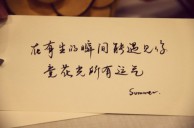 在有生的瞬间能遇见你
竟花光所有运气
Summer.